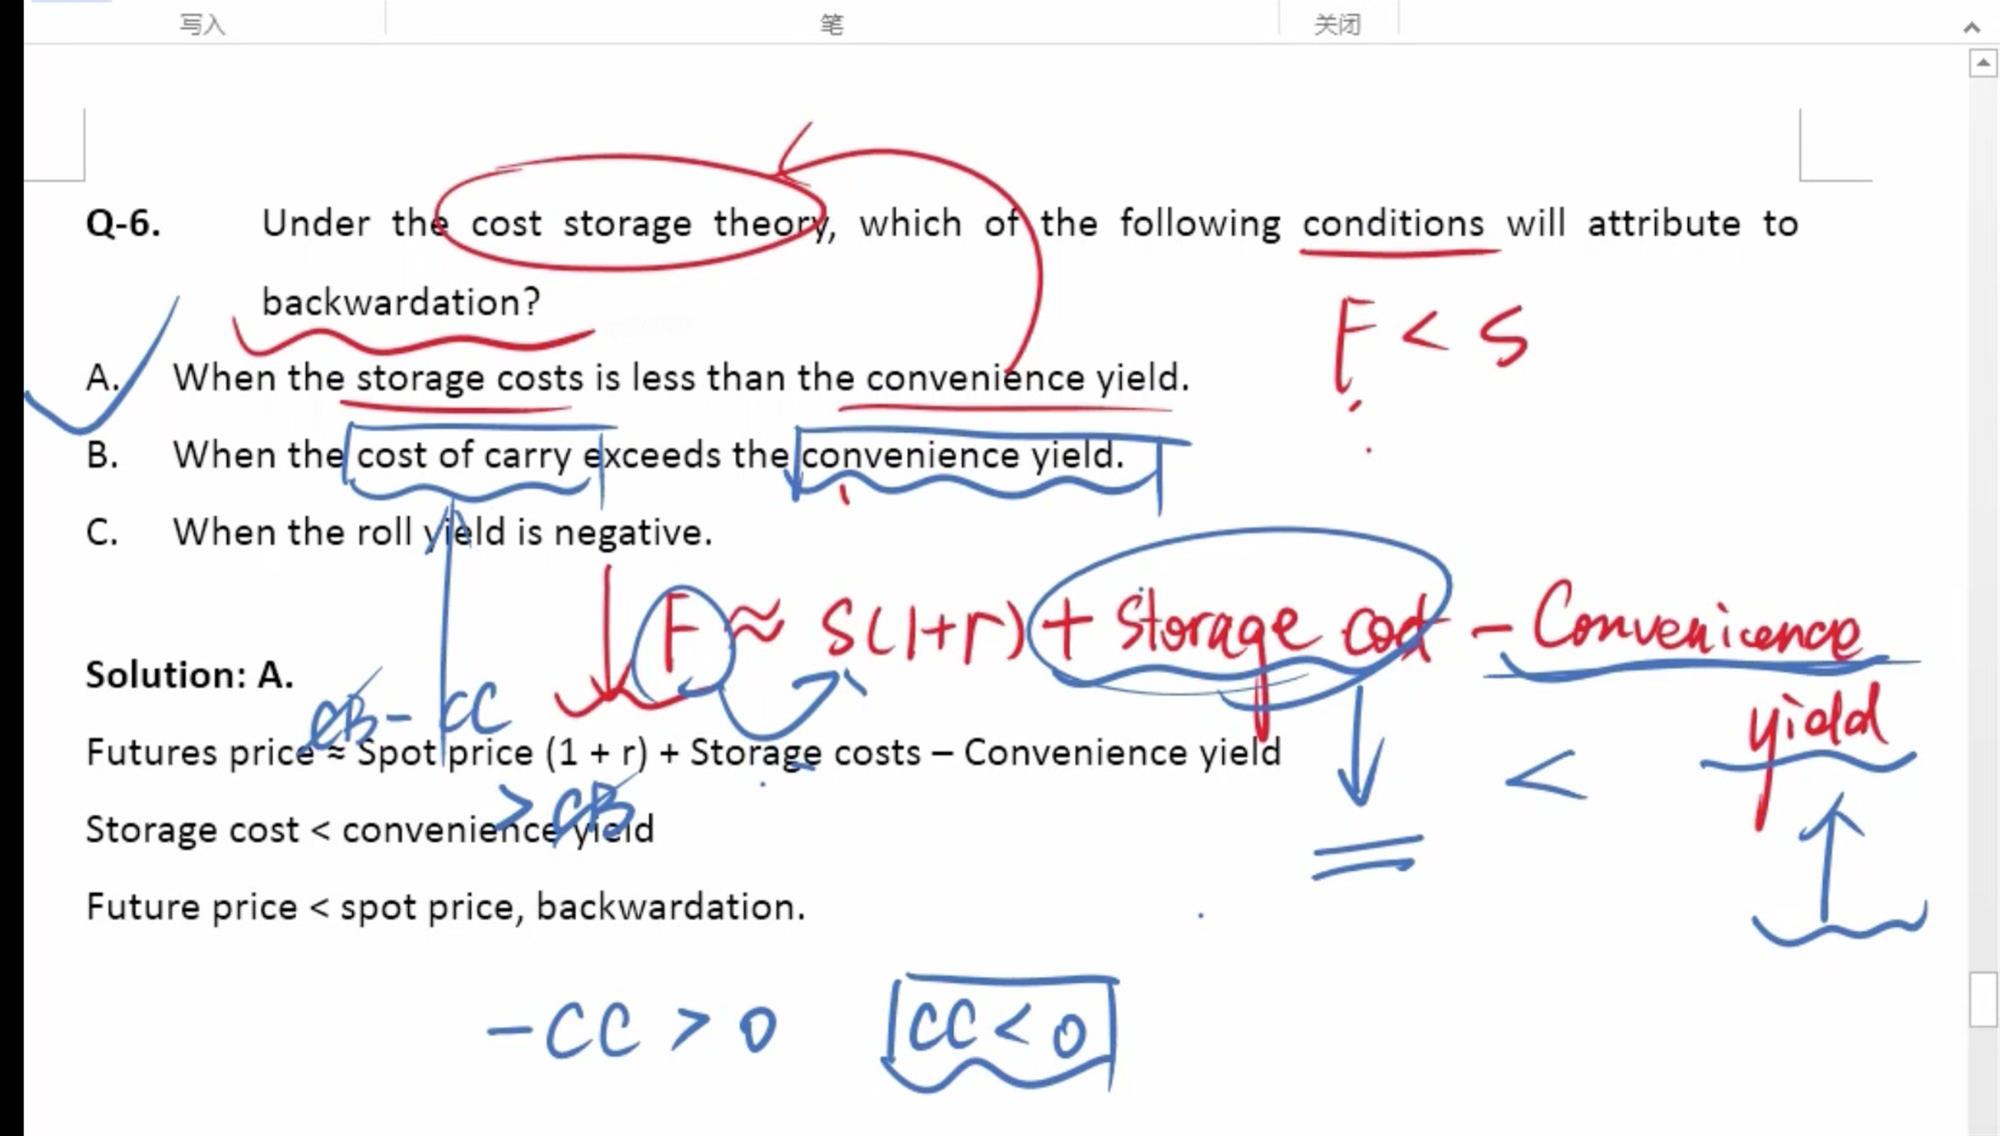 写入 笔 关闭
Q-6. Under the cost storage theory, which of the following conditions will attribute to
backwardation?
F < S
A. When the storage costs is less than the convenience yield.
B. When the cost of carry exceeds the convenience yield.
C. When the roll yield is negative.
F ≈ S(1+r) + Storage cost - Convenicence
yield
Solution: A.
CB - CC
Futures price ≈ Spot price (1 + r) + Storage costs – Convenience yield
> CB
<
Storage cost < convenience yield
Future price < spot price, backwardation.
-CC > 0 CC < 0